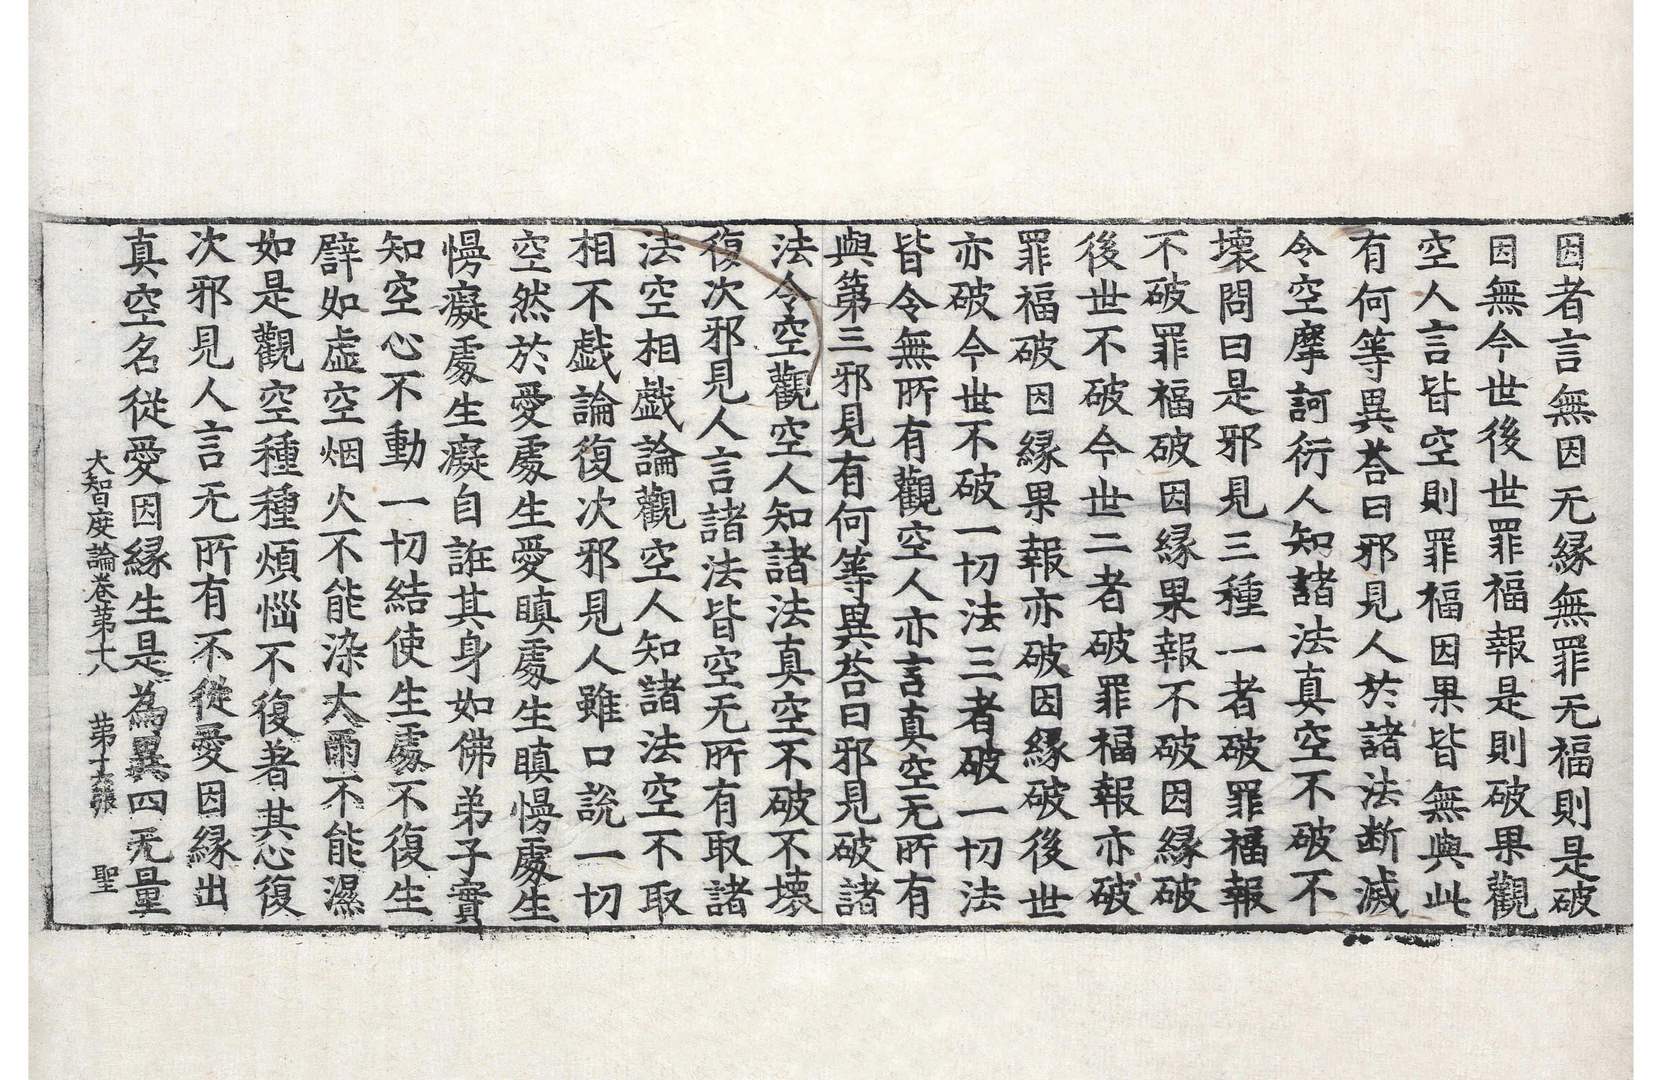 因者言無因无縁無罪无福則是破
因無今世後世罪福報是則破果觀
空人言皆空則罪福因果皆無與此
有何等異荅曰邪見人於諸法断滅
令空摩訶衍人知諸法真空不破不
壞問曰是邪見三種一者破罪福報
不破罪福破因縁果報不破因縁破
後世不破今世二者破罪福報亦破
罪福破因縁果報亦破因縁破後世
亦破今世不破一切法三者破一切法
皆令無所有觀空人亦言真空无所有
與第三邪見有何等異荅曰邪見破諸
法令空觀空人知諸法真空不破不壞
復次邪見人言諸法皆空无所有取諸
法空相戯論觀空人知諸法空不取
相不戯論復次邪見人雖口說一切
空然於愛處生愛瞋處生瞋慢處生
慢癡處生癡自誑其身如佛弟子實
知空心不動一切結使生處不復生
譬如虛空烟火不能染大雨不能濕
如是觀空種種煩惱不復著其心復
次邪見人言无所有不從愛因縁出
真空名從愛因縁生是為異四无量
大智度論卷第十八　第十六張　聖